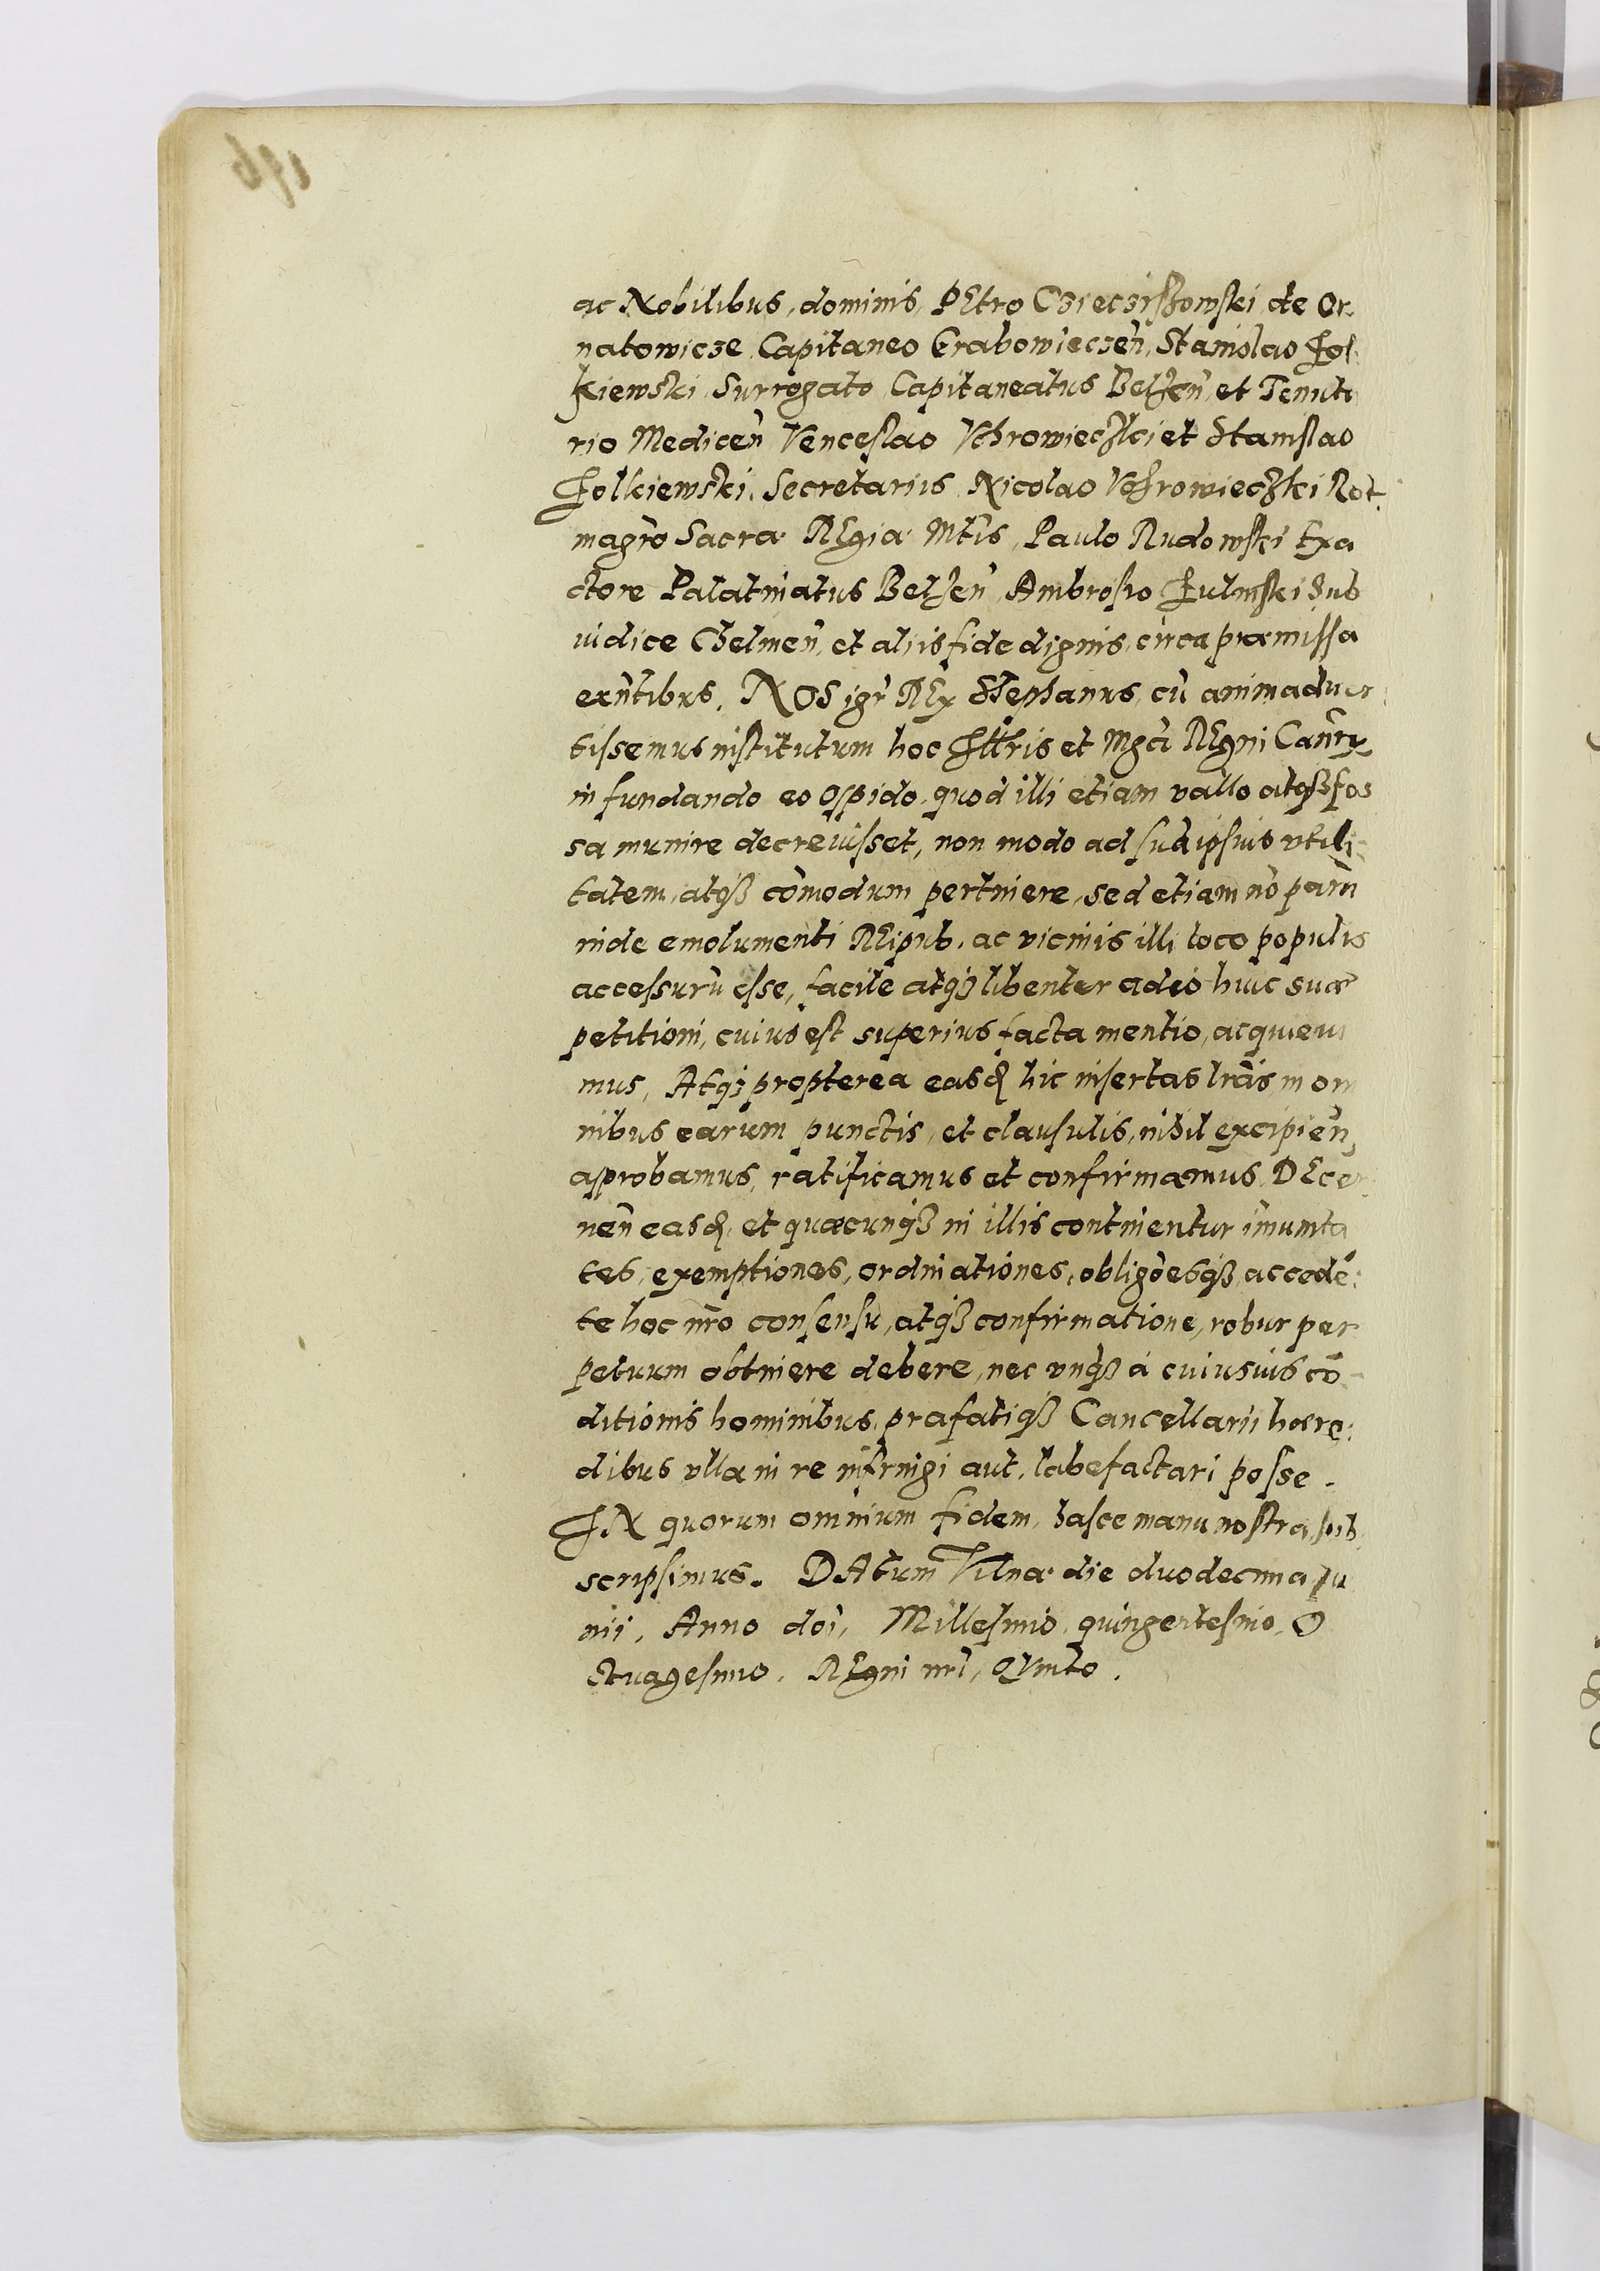 ac Nobilibus, dominis, PEtro Cziecziszowski, de Or
natowicze Capitaneo Grabowieczen̄, Stanislao Zol
kiewski, Surrogato Capitaneatus Belzen̄, et Tenuta
rio Medicen̄ Venceslao Vhrowieczki et Stanislao
Zolkiewski, Secretariis, Nicolao Vhrowieczki Rot
magrō Sacræ REgiæ Mtis, Paulo Rudowski Exa
ctore Palatinatus Belzen̄, Ambrosio Zulinski Sub
iudice Chelmen̄, et aliis fide dignis, circa præmissa
exn̄tibus. NOS igr̄ REx STephanus, cū animaduer
tissemus institutum hoc Illris et Mgci REgni Canry
in fundando eo oppido, quod illi etiam vallo atqȝ fos
sa munire decreuisset, non modo ad suā ipsius vtili
tatem, atqȝ cōmodum pertinere, sed etiam nō parū
inde emolumenti REipub. ac vicinis illi loco populis
accessurū esse, facile atqȝ libenter adeō huic suæ
petitioni, cuius est superius facta mentio, acquieui
mus, Atqȝ propterea easd hic insertas lrās in om
nibus earum punctis, et clausulis, nihil excipien̄,
approbamus, ratificamus et confirmamus. DEcer
nen̄ easd, et quæcunqȝ in illis continentur im̄unita
tes, exemptiones, ordinationes, obligōesqȝ accedē
te hoc nr̄o consensu, atqȝ confirmatione, robur per
petuum obtinere debere, nec vnqȝ à cuiusuis cō
ditionis hominibus, præfatiqȝ Cancellarii hære
dibus vlla in re infringi aut, labefactari posse.
IN quorum omnium fidem, hasce manu nostra sub
scripsimus. DAtum Vilnæ die duodecima Iu
nii, Anno doī, Millesimo, quingentesimo, O
ctuagesimo. REgni nrī, QVinto.